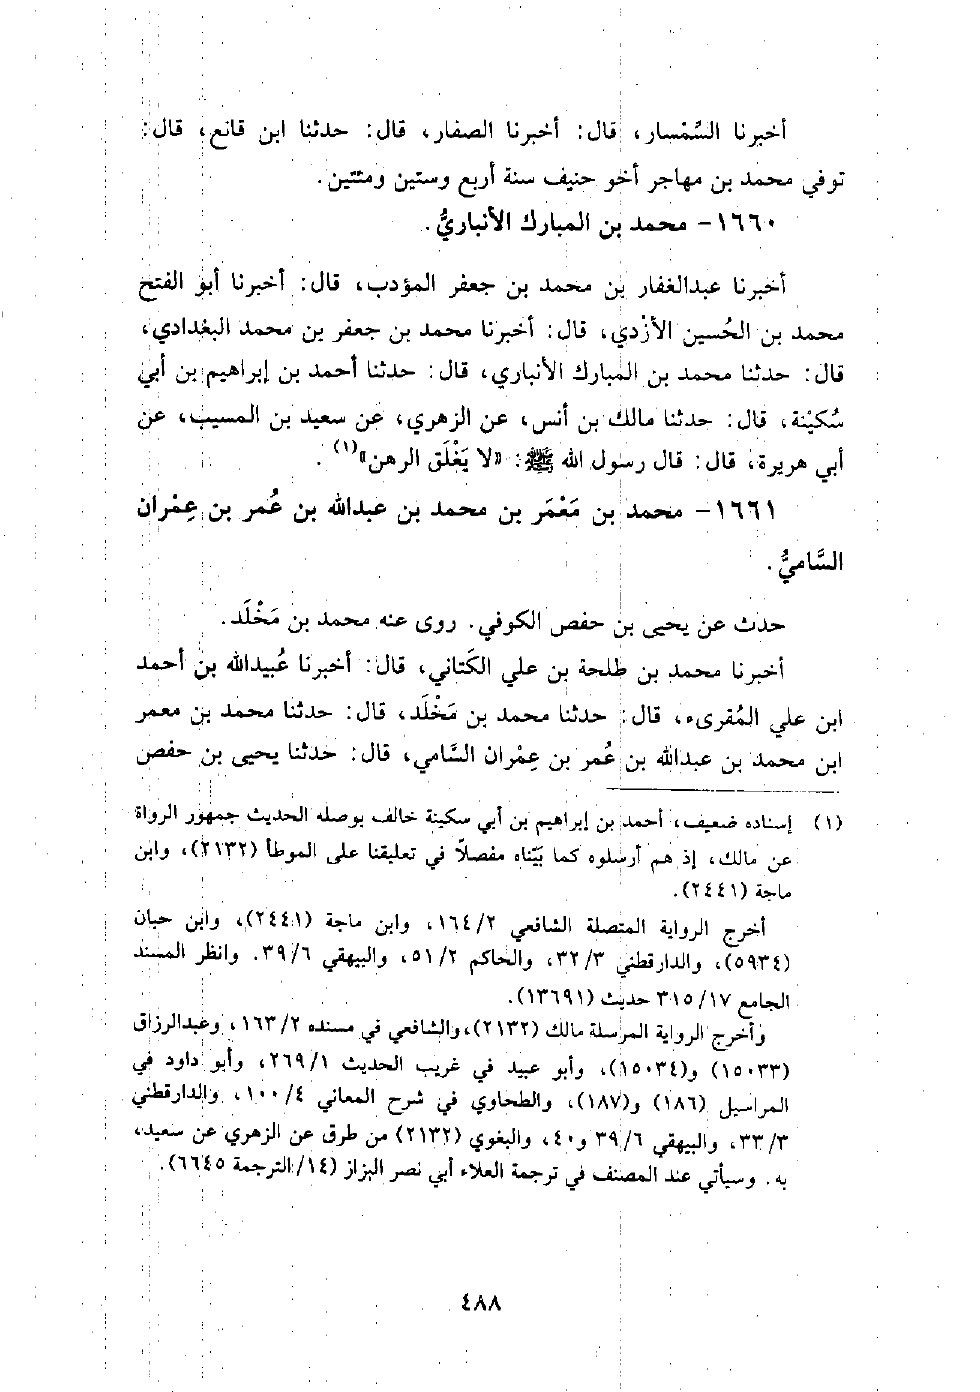 أخبرنا السِّمْسار، قال: أخبرنا الصفار، قال: حدثنا ابن قانع، قال:
توفي محمد بن مهاجر أخو حنيف سنة أربع وستين ومئتين.
١٦٦٠- محمد بن المبارك الأنباريُّ.
أخبرنا عبدالغفار بن محمد بن جعفر المؤدب، قال: أخبرنا أبو الفتح
محمد بن الحُسين الأزْدي، قال: أخبرنا محمد بن جعفر بن محمد البغدادي،
قال: حدثنا محمد بن المبارك الأنباري، قال: حدثنا أحمد بن إبراهيم بن أبي
سُكيْنة، قال: حدثنا مالك بن أنس، عن الزهري، عن سعيد بن المسيب، عن
أبي هريرة، قال: قال رسول الله ﷺ: «لا يَغْلَق الرهن»(١).
١٦٦١- محمد بن مَعْمَر بن محمد بن عبدالله بن عُمر بن عِمْران
السَّاميُّ.
حدث عن يحيى بن حفص الكوفي. روى عنه محمد بن مَخْلَد.
أخبرنا محمد بن طلحة بن علي الكَتاني، قال: أخبرنا عُبيدالله بن أحمد
ابن علي المُقرىء، قال: حدثنا محمد بن مَخْلَد، قال: حدثنا محمد بن معمر
ابن محمد بن عبدالله بن عُمر بن عِمْران السَّامي، قال: حدثنا يحيى بن حفص
(١) إسناده ضعيف، أحمد بن إبراهيم بن أبي سكينة خالف بوصله الحديث جمهور الرواة
عن مالك، إذ هم أرسلوه كما بَيّناه مفصلاً في تعليقنا على الموطأ (٢١٣٢)، وابن
ماجة (٢٤٤١).
أخرج الرواية المتصلة الشافعي ١٦٤/٢، وابن ماجة (٢٤٤١)، وابن حبان
(٥٩٣٤)، والدارقطني ٣٢/٣، والحاكم ٥١/٢، والبيهقي ٣٩/٦. وانظر المسند
الجامع ٣١٥/١٧ حديث (١٣٦٩١).
وأخرج الرواية المرسلة مالك (٢١٣٢)، والشافعي في مسنده ١٦٣/٢، وعبدالرزاق
(١٥٠٣٣) و(١٥٠٣٤)، وأبو عبيد في غريب الحديث ٢٦٩/١، وأبو داود في
المراسيل (١٨٦) و(١٨٧)، والطحاوي في شرح المعاني ١٠٠/٤، والدارقطني
٣٣/٣، والبيهقي ٣٩/٦ و٤٠، والبغوي (٢١٣٢) من طرق عن الزهري عن سعيد،
به. وسيأتي عند المصنف في ترجمة العلاء أبي نصر البزاز (١٤/الترجمة ٦٦٤٥).
٤٨٨